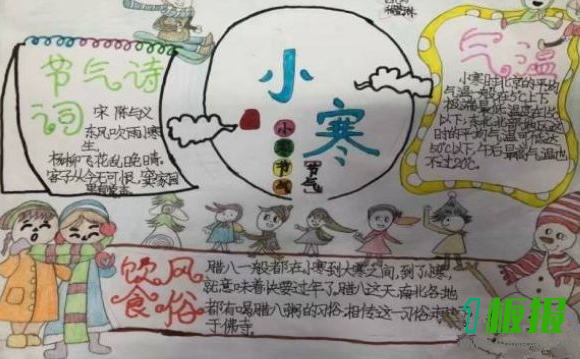 节气诗
词
宋 陈与义
东风吹雨小寒
生
杨柳飞花乱晚晴
客子从今无可恨，窦家园
里有莺声
小
寒
小
寒
节
气
节气
气温
小寒时北京的平均
气温一般在-5℃上下
以下，
时的平均气温
50℃以下，午后最高气温也
不过20℃.
饮食
风俗
腊八一般都在小寒到大寒之间，到了小寒
就意味着快要过年了。腊八这天，南北各地
都有喝腊八粥的习俗，相传这一习俗来
于佛寺.
1板报